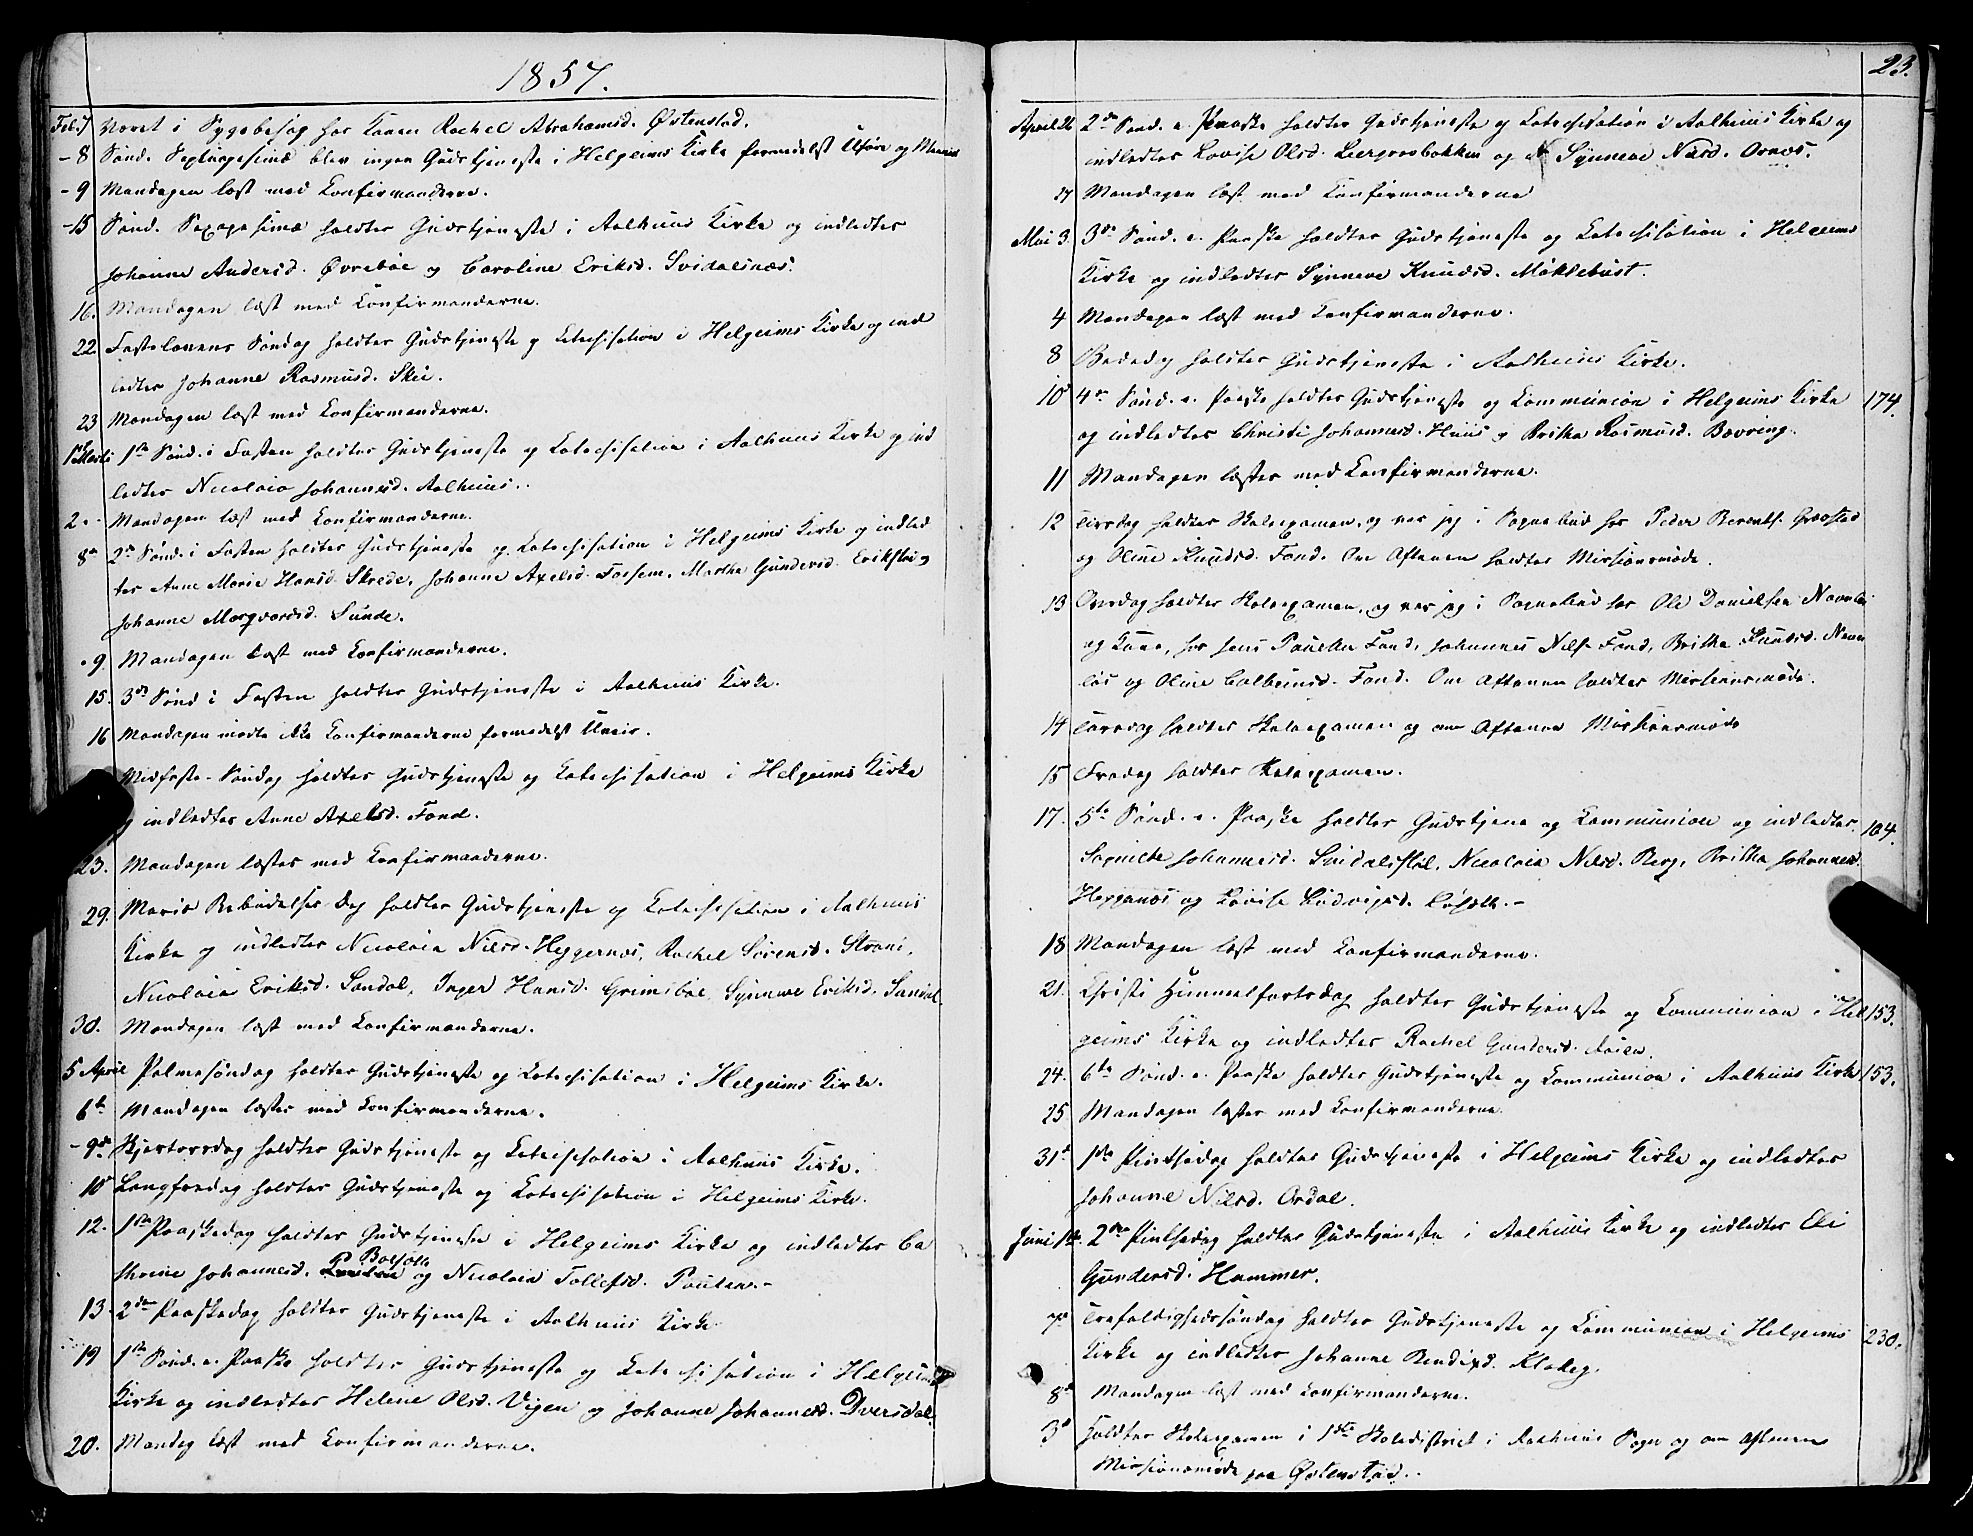 1857.
Feb. 7 Været i Sygebesøg hos Konen Rachel Abrahamsd. Østenstad.
- 8 Sønd. Septuagesimæ blev ingen Gudstjeneste i Helgeims Kirke formedelst Uføre og
- 9 Mandagen læst med Konfirmanderne.
- 15 Sønd. Sexagesimæ holdtes Gudstjeneste i Aalhuus Kirke og indledtes
Johanne Andersd. Øvrebøe og Caroline Eriksd. Svidalsnæs.
16. Mandagen læst med Konfirmanderne.
22 Fastelavens Søndag holdtes Gudstjeneste og Katechisation i Helgeims Kirke og ind
ledtes Johanne Rasmusd. Skei.
23 Mandagen læst med Konfirmanderne.
1ste Marts 1ste Sønd. i Fasten holdtes Gudstjeneste og Katechisation i Aalhuus Kirke og ind
ledtes Nicolaia Johannesd. Aalhuus.
2. Mandagen læst med Konfirmanderne.
8de 2den Sønd. i Fasten holdtes Gudstjeneste og Katechisation i Helgeims Kirke og indled
tes Anne Marie Hansd. Skrede, Johanne Axelsd. Fossem, Martha Gundersd. Erikstei og
Johanne Margvardsd. Sunde.
9. Mandagen læst med Konfirmanderne.
15. 3die Sønd i Fasten holdtes Gudstjeneste i Aalhuus Kirke.
16 Mandagen mødte ikke Konfirmanderne formedelst Uveir.
Midfaste-Søndag holdtes Gudstjeneste og Katechisation i Helgeims Kirke
og indledtes Anne Axelsd. Fond.
23. Mandagen læstes med Konfirmanderne.
29. Mariæ Bebudelses Dag holdtes Gudstjeneste og Katechisation i Aalhuus
Kirke og indledtes Nicolaia Nilsd. Heggernæs, Rachel Sørensd. Strand,
Nicolaia Eriksd. Sandal, Inger Hansd. Grimsbøe, Synneve Eriksd. Sandal
30. Mandagen læst med Konfirmanderne.
5 April Palmesøndag holdtes Gudstjeneste og Katechisation i Helgeims Kirke.
6te Mandagen læstes med Konfirmanderne.
- 9de Skjertorsdag holdtes Gudstjeneste og Katechisation i Aalhuus Kirke.
10 Langfredag holdtes Gudstjeneste og Katechisation i Helgeims Kirke.
12. 1ste Paaskedag holdtes Gudstjeneste i Helgeims Kirke og indledtes Ca
thrine Johannesd. Bolsætt og Nicolaia Tollefsd. Paulen.-
13. 2den Paaskedag holdtes Gudstjeneste i Aalhuus Kirke
19 1ste Sønd. e. Paaske holdtes Gudstjeneste og Katechisation i Helgeims
Kirke og indledtes Helene Olsd. Vigen og Johanne Johannesd. Dversdal.
20. Mandag læst med Konfirmanderne.
23.
April 26 2den Sønd. e. Paaske holdtes Gudstjeneste og Katechisation i Aalhuus Kirke og
indledtes Lovise Olsd. Leergrovbakken og Synneve Nilsd. Ornæs.
27 Mandagen læst med Konfirmanderne
Mai 3. 3die Sønd. e. Paaske holdtes Gudstjeneste og Katechisation i Helgeims
Kirke og indledtes Synneve Knudsd. Møklebust.
4 Mandagen læst med Konfirmanderne.
8 Bededag holdtes Gudstjeneste i Aalhuus Kirke.
10 4de Sønd. e. Paaske holdtes Gudstjeneste og Kommunion i Helgeims Kirke 174.
og indledtes Christi Johannesd. Huus og Britha Rasmusd. Bovring.
11 Mandagen læstes med Konfirmanderne.
12 Tirsdag holdtes Skoleexamen, og var jeg i Sognebud hos Peder Berents. Grøvstad
og Oline Knudsd. Fond. Om Aftenen holdtes Missionsmøde.
13 Onsdag holdtes Skoleexamen, og var jeg i Sognebud hos Ole Danielsen Navnløs
og Kone, hos Jens Fond, Johannes Nils. Fond, Britha Knudsd. Navn
løs og Oline Colbeinsd. Fond. Om Aftenen holdtes Missionsmøde.
14 Torsdag holdtes Skoleexamen og om Aftenen Missionsmøde
15 Fredag holdtes Skoleexamen.
17. 5te Sønd. e. Paaske holdtes Gudstjene og Kommunion og indledtes 104.
Johannesd. Svidalsstøl, Nicolaia Nilsd. Berg, Britha Johannesd.
Heggenæs og Lovise Ludvigsd. -
18 Mandagen læst med Konfirmanderne.
21. Christi Himmelfartsdag holdtes Gudstjeneste og Kommunion i Hel 153.
geims Kirke og indledtes Rachel Gundersd. Aasen.
24. 6te Sønd. e. Paaske holdtes Gudstjeneste og Kommunion i Aalhuus Kirke 153.
25 Mandagen læstes med Konfirmanderne.
31te 1ste Pintsedag holdtes Gudstjeneste i Helgeims Kirke og indledtes
Johanne Nilsd. Ordal.
Juni 1ste 2den Pintsedag holdtes Gudstjeneste i Aalhuus Kirke og indledtes Eli
Gundersd. Hammer.
7de Trefoldighedssøndag holdtes Gudstjeneste og Kommunion i Helgeims 230.
Kirke og indledtes Johanne Bendixd. Klakeg.
8de Mandagen læst med Konfirmanderne.
3die Holdtes Skoleexamen i 1ste Skoledistrict i Aalhuus Sogn og om Aftenen
Missionsmøde paa Østenstad..